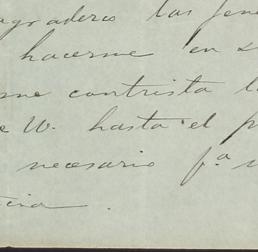 agraderos las
hacerme en s
me contrista l
e W. hasta el p
necesario pª
cia.